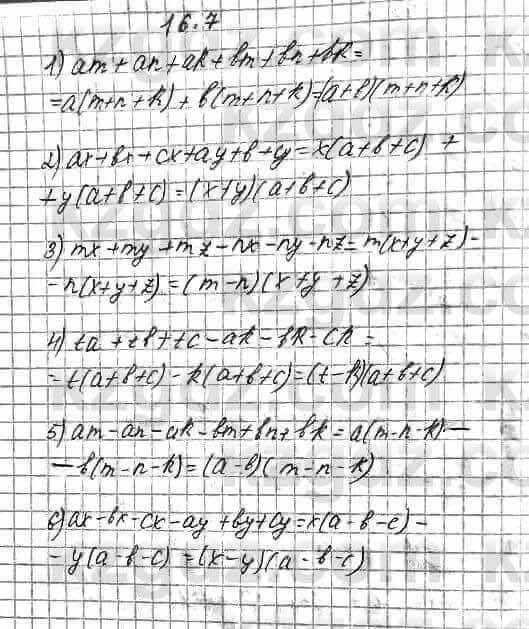 16.7
1) am + an + ak + bm + bn + bk =
= a(m+n+k) + b(m+n+k) = (a+b)(m+n+k)
2) ax+bx+cx+ay+b+cy = x(a+b+c) +
+ y(a+b+c) = (x+y)(a+b+c)
3) mx+my+mz-nx-ny-nz = m(x+y+z) -
- n(x+y+z) = (m-n)(x+y+z)
4) ta+tb+tc-ak-bk-ck =
= t(a+b+c) - k(a+b+c) = (t-k)(a+b+c)
5) am-an-ak-bm+bn+bk = a(m-n-k) -
- b(m-n-k) = (a-b)(m-n-k)
6) ax-bx-cx-ay+by+cy = x(a-b-c) -
- y(a-b-c) = (x-y)(a-b-c)